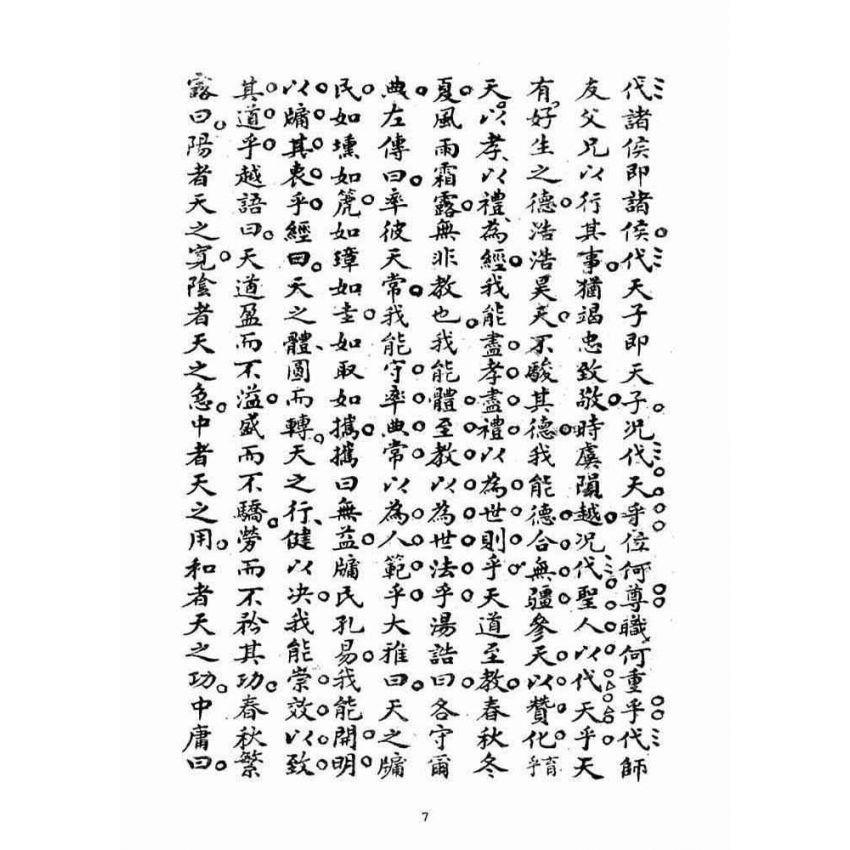 代諸侯即諸侯代天子即天子况代天乎位何尊職何重乎代師
友父兄以行其事猶竭忠致敬時虞隕越况代聖人以代天乎天
有好生之德浩浩昊天不駿其德我能德合無疆參天以贊化育乎
天以孝以禮為經我能盡孝盡禮以為世則乎天道至教春秋冬
夏風雨霜露無非教也我能體至教以為世法乎湯誥曰各守爾
典左傳曰率彼天常我能守率典常以為人範乎大雅曰天之牖
民如壎如篪如璋如圭如取如攜攜曰無益牖民孔易我能開明
以牖其衷乎經曰天之體圓而轉天之行健以决我能崇效以致
其道乎越語曰天道盈而不溢盛而不驕勞而不矜其功春秋繁
露曰陽者天之寬陰者天之急中者天之用和者天之功中庸曰
7